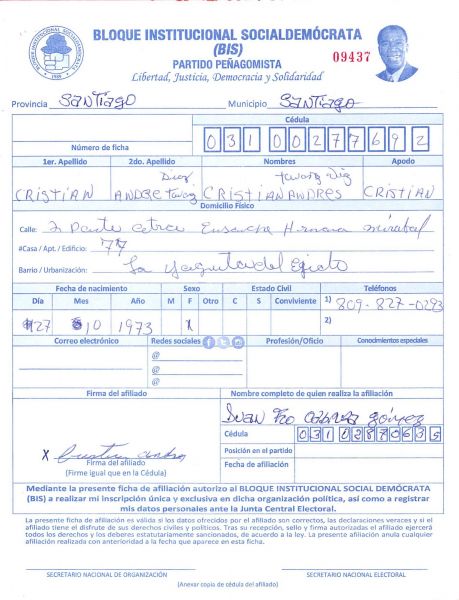 BLOQUE INSTITUCIONAL SOCIALDEMÓCRATA
(BIS)
PARTIDO PEÑAGOMISTA
Libertad, Justicia, Democracia y Solidaridad
09437
BLOQUE INSTITUCIONAL SOCIALDEMOCRATA
Provincia SANTIAGO Municipio SANTIAGO
Cédula
Número de ficha 03100277692
1er. Apellido 2do. Apellido Nombres Apodo
CRISTIAN ANDRE CRISTIAN ANDRES CRISTIAN
Domicilio Físico
Calle: Ensanche Hermana mirabal
#Casa / Apt. / Edificio: 77
Barrio / Urbanización: La
Fecha de nacimiento Sexo Estado Civil Teléfonos
Día Mes Año M F Otro C S Conviviente 1) 809-827-0293
27 10 1973 X 2)
Correo electrónico Redes sociales Profesión/Oficio Conocimientos especiales
@
@
@
Firma del afiliado Nombre completo de quien realiza la afiliación
JUAN Fco CABRERA gómez
Cédula 03102870635
X Posición en el partido
Firma del afiliado
(Firme igual que en la Cédula) Fecha de afiliación
Mediante la presente ficha de afiliación autorizo al BLOQUE INSTITUCIONAL SOCIAL DEMÓCRATA
(BIS) a realizar mi inscripción única y exclusiva en dicha organización política, así como a registrar
mis datos personales ante la Junta Central Electoral.
La presente ficha de afiliación es válida si los datos ofrecidos por el afiliado son correctos, las declaraciones veraces y si el
afiliado tiene el disfrute de sus derechos civiles y políticos. Tras su recepción, sello y firma autorizadas el afiliado ejercerá
todos los derechos y los deberes estatutariamente sancionados, de acuerdo a la ley. La presente afiliación anula cualquier
afiliación realizada con anterioridad a la fecha que aparece en esta ficha.
SECRETARIO NACIONAL DE ORGANIZACIÓN SECRETARIO NACIONAL ELECTORAL
(Anexar copia de cédula del afiliado)